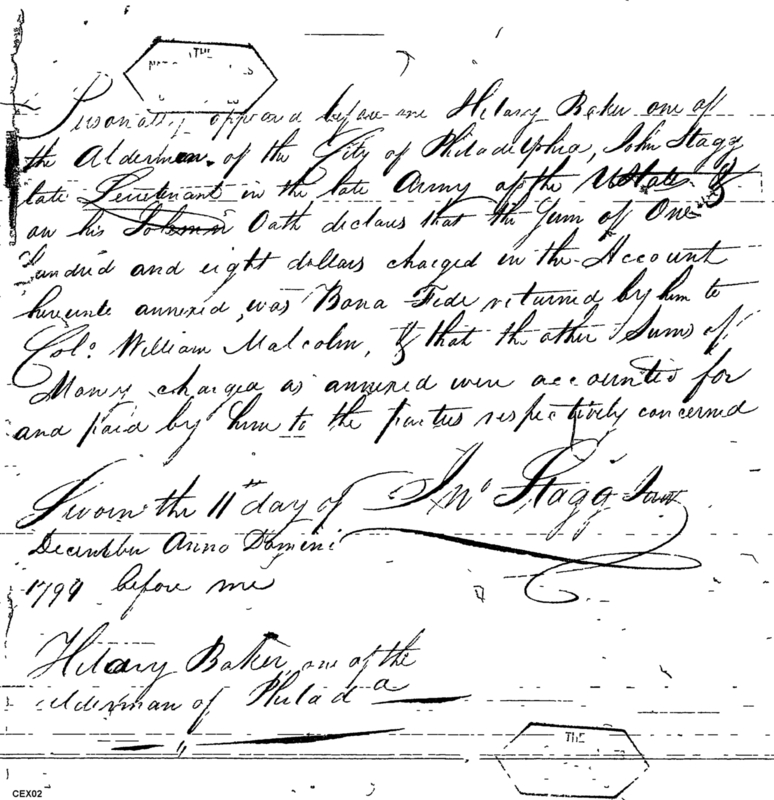 THE
Personally appeared before me Hilary Baker one of
the Aldermen of the City of Philadelphia, John Stagg
late Lieutenant in the late Army of the UStates &
on his Solemn Oath declares that the Sum of One
Hundred and eight dollars charged in the Account
hereunto annexed, was Bona Fide returned by him to
Colo. William Malcolm, & that the other Sums of
Money charged as annexed were accounted for
and paid by him to the parties respectively concerned
Sworn the 11th day of Jno Stagg Junr
December Anno Domini
before me
Hilary Baker, one of the
alderman of Philada
THE
CEX02